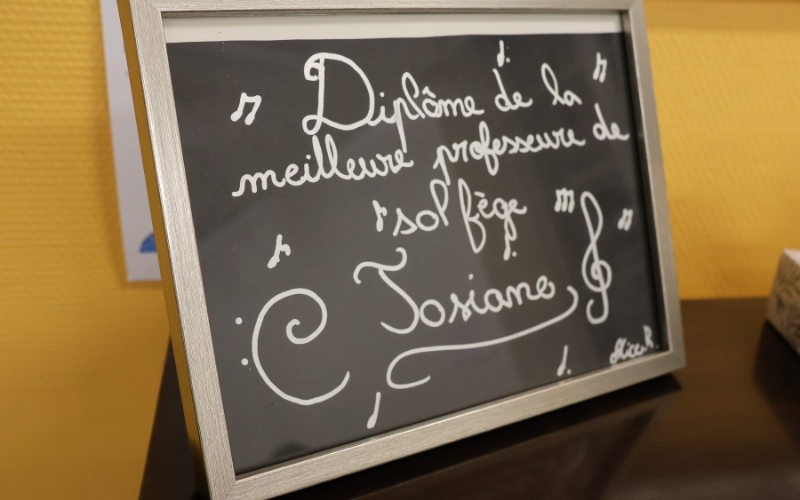 Diplôme de la
meilleure professeure de
solfège
Josiane